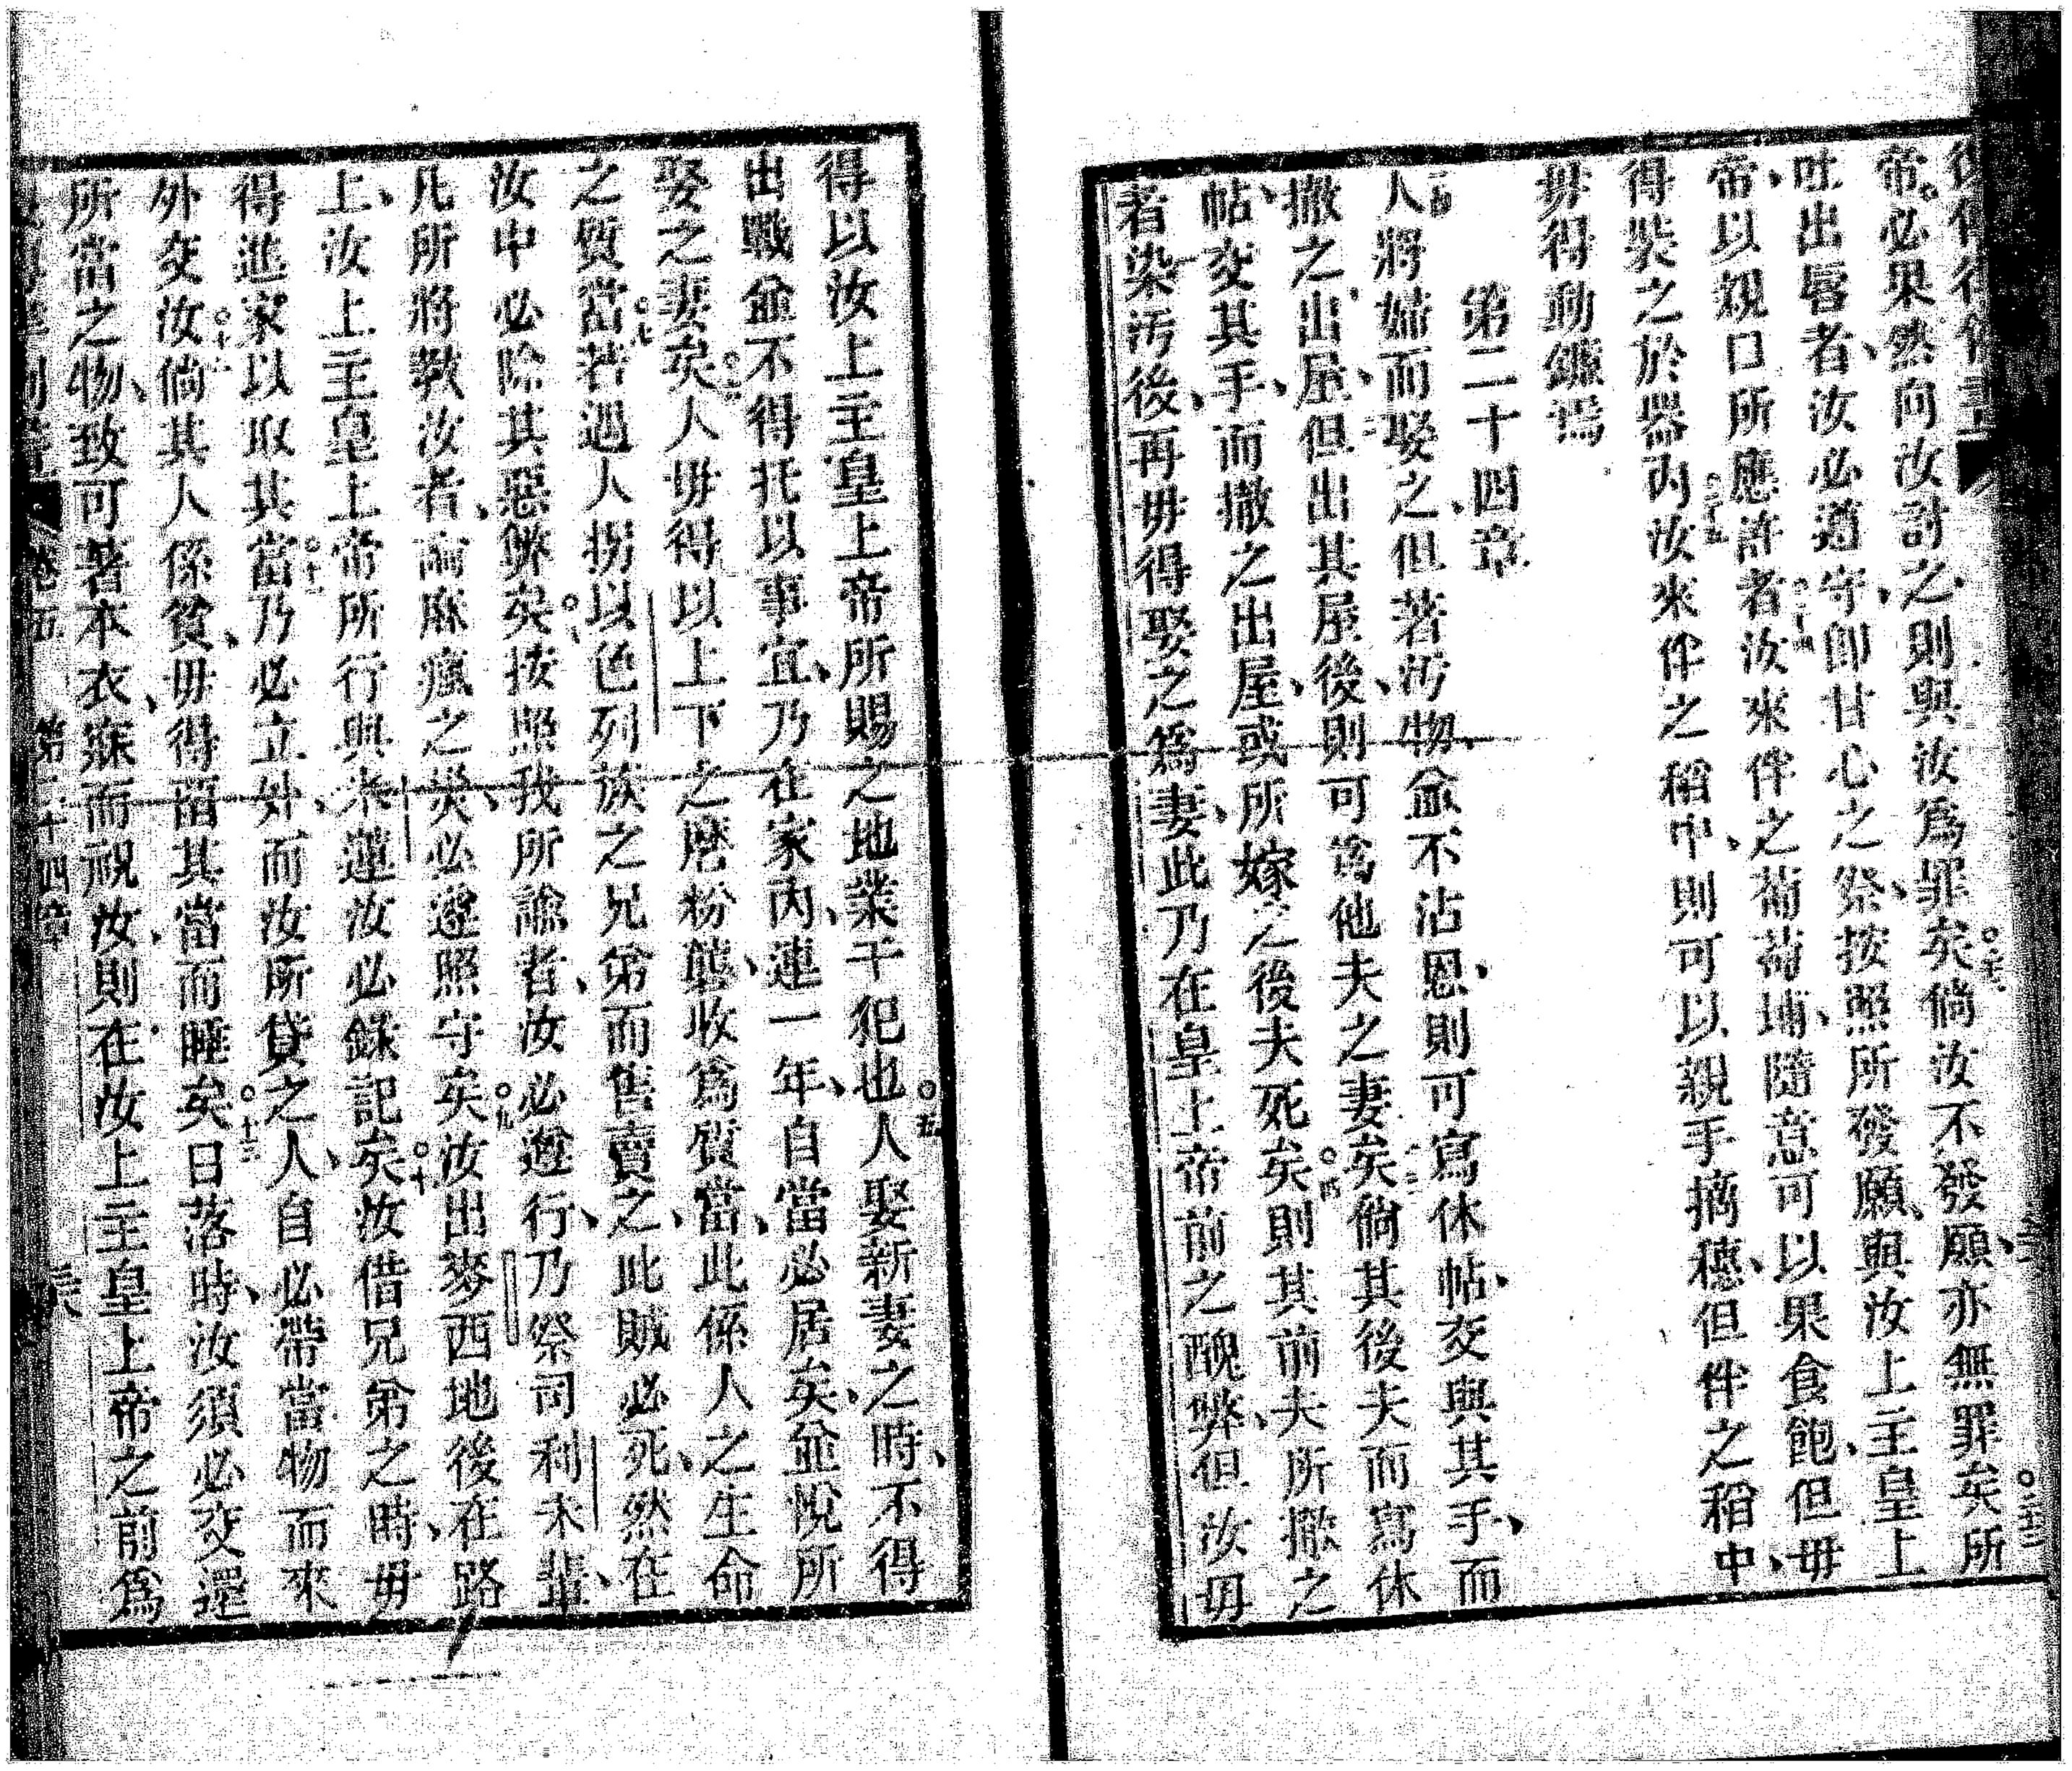 帝必果然向汝討之則與汝爲罪矣○二十二倘汝不發願、亦無罪矣○二十三所
吐出唇者、汝必遵守、卽甘心之祭、按照所發願、與汝上主皇上
帝、以親口所應許者○二十四汝來伴之葡萄埔、隨意可以果食飽、但毋
得裝之於器內○二十五汝來伴之稻中、則可以親手摘穗、但伴之稻中、
毋得動鐮焉
第二十四章
人將婦而娶之、但著汚物、並不沾恩、則可寫休帖、交與其手、而
撤之出屋、○二但出其屋後、則可爲他夫之妻矣○三倘其後夫而寫休
帖、交其手、而撤之出屋、或所嫁之後夫死矣○四則其前夫所撤之
者、染汚後、再毋得娶之爲妻、此乃在皇上帝前之醜弊、但汝毋
得以汝上主皇上帝所賜之地業干犯也○五人娶新妻之時、不得
出戰、並不得托以事宜、乃在家內、連一年、自當必居矣、並悅所
娶之妻矣○六人毋得以上下之磨粉磋、收爲質當、此係人之生命
之質當○七若遇人拐以色列族之兄弟而售賣之、此賊必死、然在
汝中必除其惡弊矣○八按照我所諭者、汝必遵行、乃祭司利未輩、
凡所將教汝者、而麻瘋之災、必遵照守矣○九汝出麥西地後、在路
上、汝上主皇上帝所行與米蓮、汝必錄記矣○十汝借兄弟之時、毋
得進家以取其當○十一乃必立外、而汝所貸之人、自必帶當物而來
外交汝○十二倘其人係貧、毋得留其當而睡矣○十三日落時、汝須必交還
所當之物、致可著本衣、寐而祝汝、則在汝上主皇上帝之前爲
卷五 第二十四章